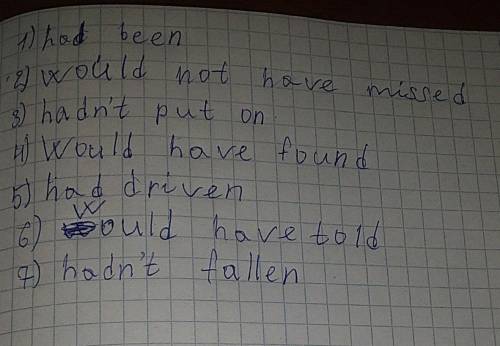 1) had been
2) would not have missed
3) hadn't put on
4) Would have found
5) had driven
6) Would have told
7) hadn't fallen